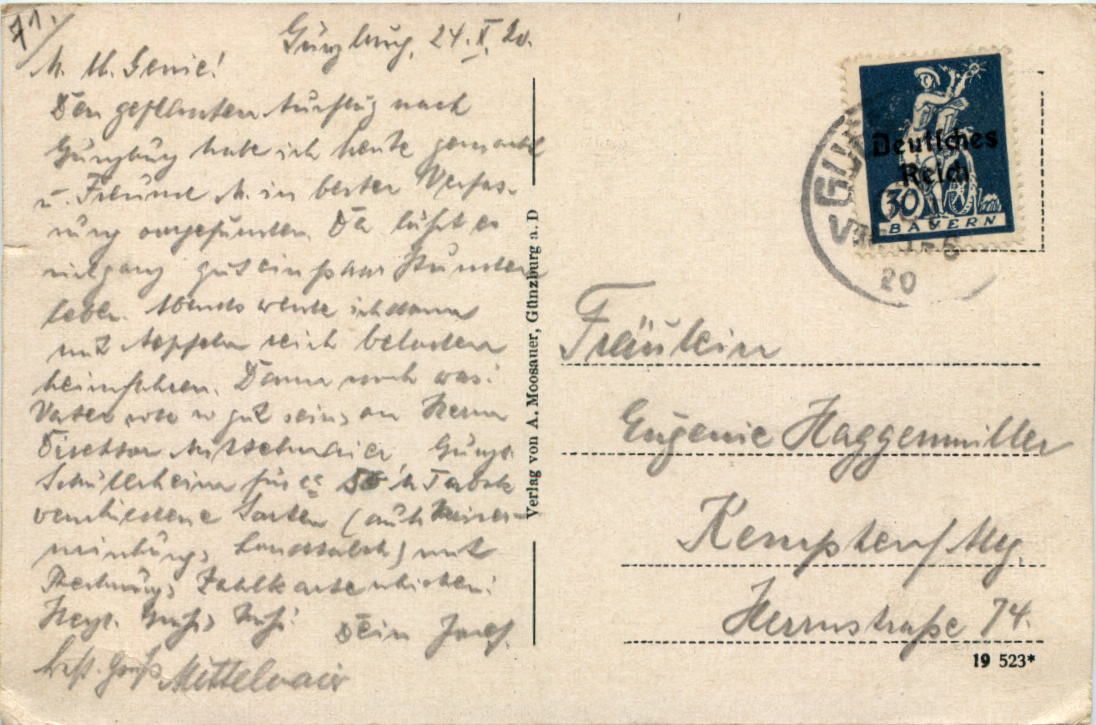 71.
Günzburg, 24. X. 20.
M. lb. Genie!
Den geplanten Ausflug nach
Günzburg habe ich heute gemacht
u. Freund M. in bester Verfas-
sung vorgefunden. Da läßt es
gut ein paar Stunden
leben. Abends werde ich dann
mit Aepfeln reich beladen
heimfahren. Dann noch was:
Vater so gut sein, an Herrn
Direktor Günzb.
Schülerheim für Tabak
verschiedene Sorten (auch
mischung, ) mit
Rechnung, Zahlkarte schicken.
Herzl. Gruß, Kuß!
Dein Josef.
Gruß Mittelmair
Verlag von A. Moosauer, Günzburg a. D
Deutsches
Reich
30
BAYERN
20
Fräulein
Eugenie Haggenmiller
Kempten/Allg.
Herrnstraße 74.
19 523*